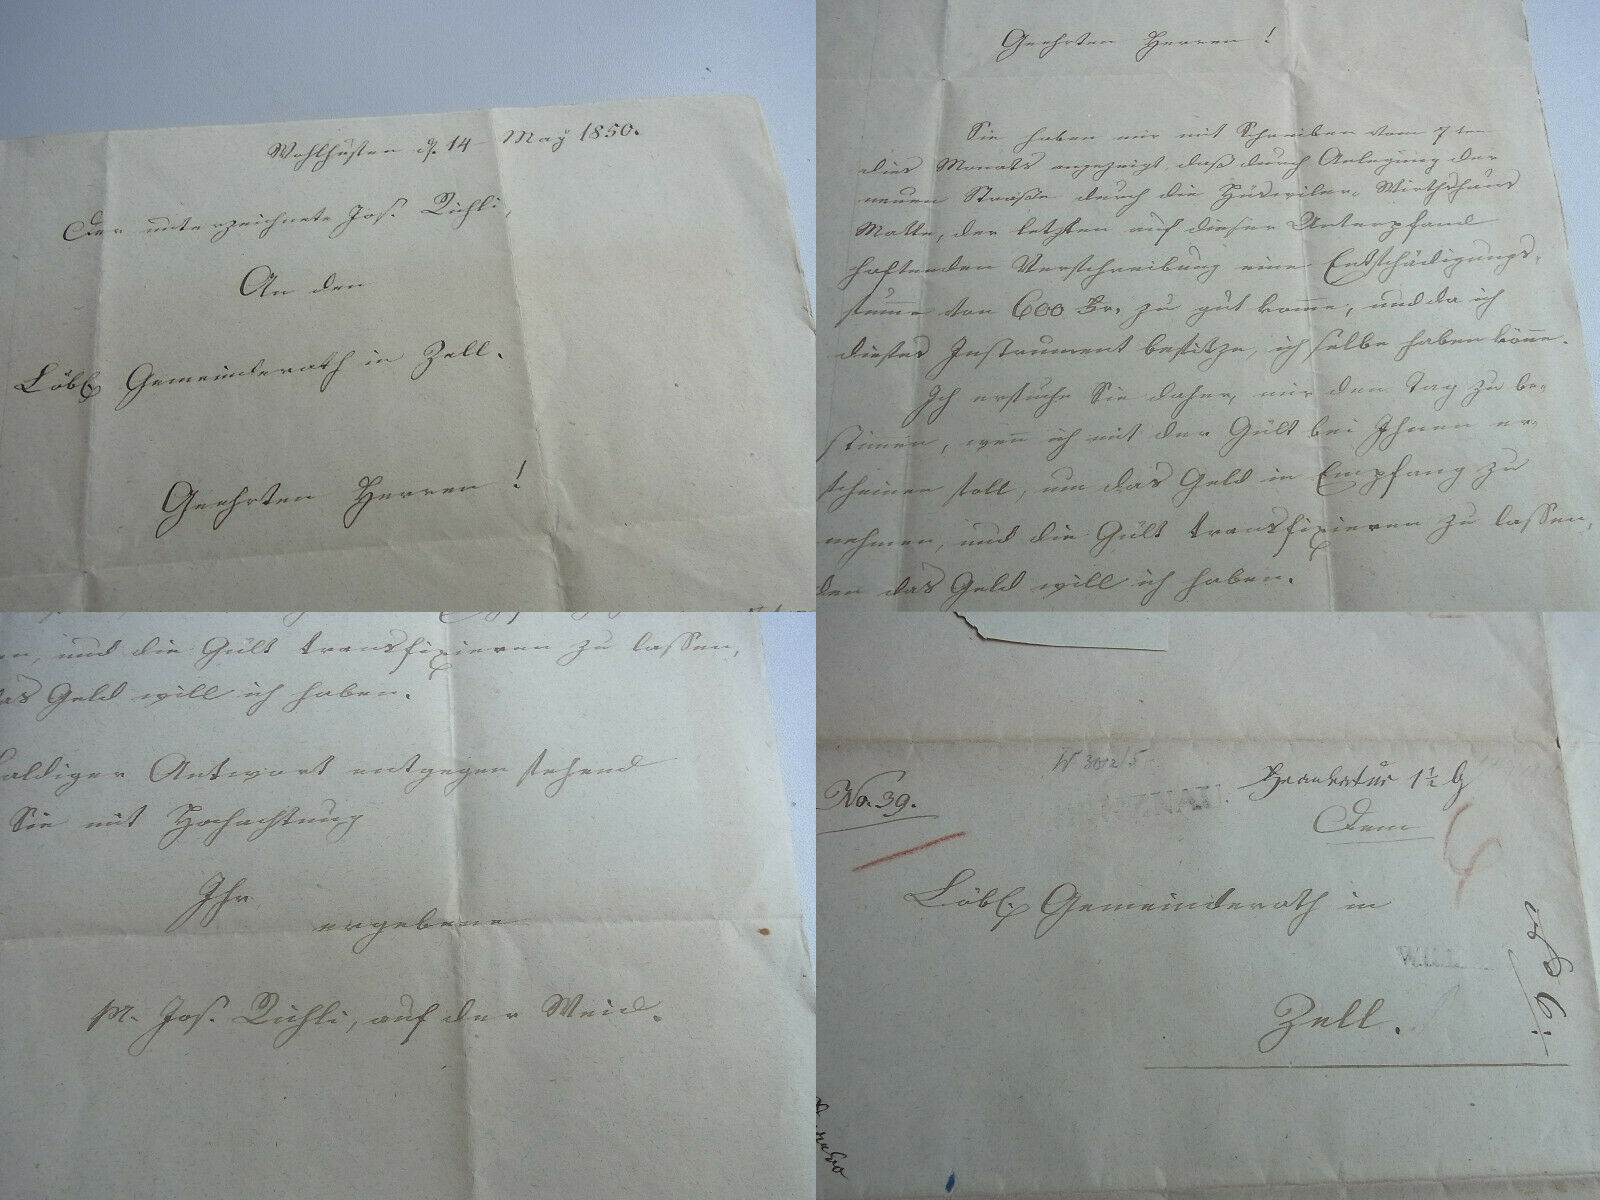 Wohlhusen d. 14 May 1850.
Der unterzeichnete Jos. Bichli,
An den
Löbl. Gemeinderath in Zell.
Geehrten Herren!
Geehrten Herren!
Sie haben mir mit Schreiben vom 7ten
dies Monats angezeigt, daß durch Anlegung der
neuen Straße durch die Hüswiler-Wirthshaus
Matte, der letzten auf dieser Unterpfand
haftenden Verschreibung eine Entschädigungs-
summe von 600 Fr. zu gut komme, und da ich
dieses Instrument besitze, ich selbe haben könne.
Ich ersuche Sie daher, mir den Tag zu be-
stimmen, wenn ich mit der Gült bei Ihnen er-
scheinen soll, um das Geld in Empfang zu
nehmen, und die Gült transfixieren zu lassen,
den das Geld will ich haben.
en, und die Gült transfixieren zu lassen,
das Geld will ich haben.
baldiger Antwort entgegen sehend
Sie mit Hochachtung
Ihr
ergebene
M. Jos. Bichli, auf der Weid.
No. 39.
Frankatur 1½ b
Dem
Löbl. Gemeinderath in
Zell.